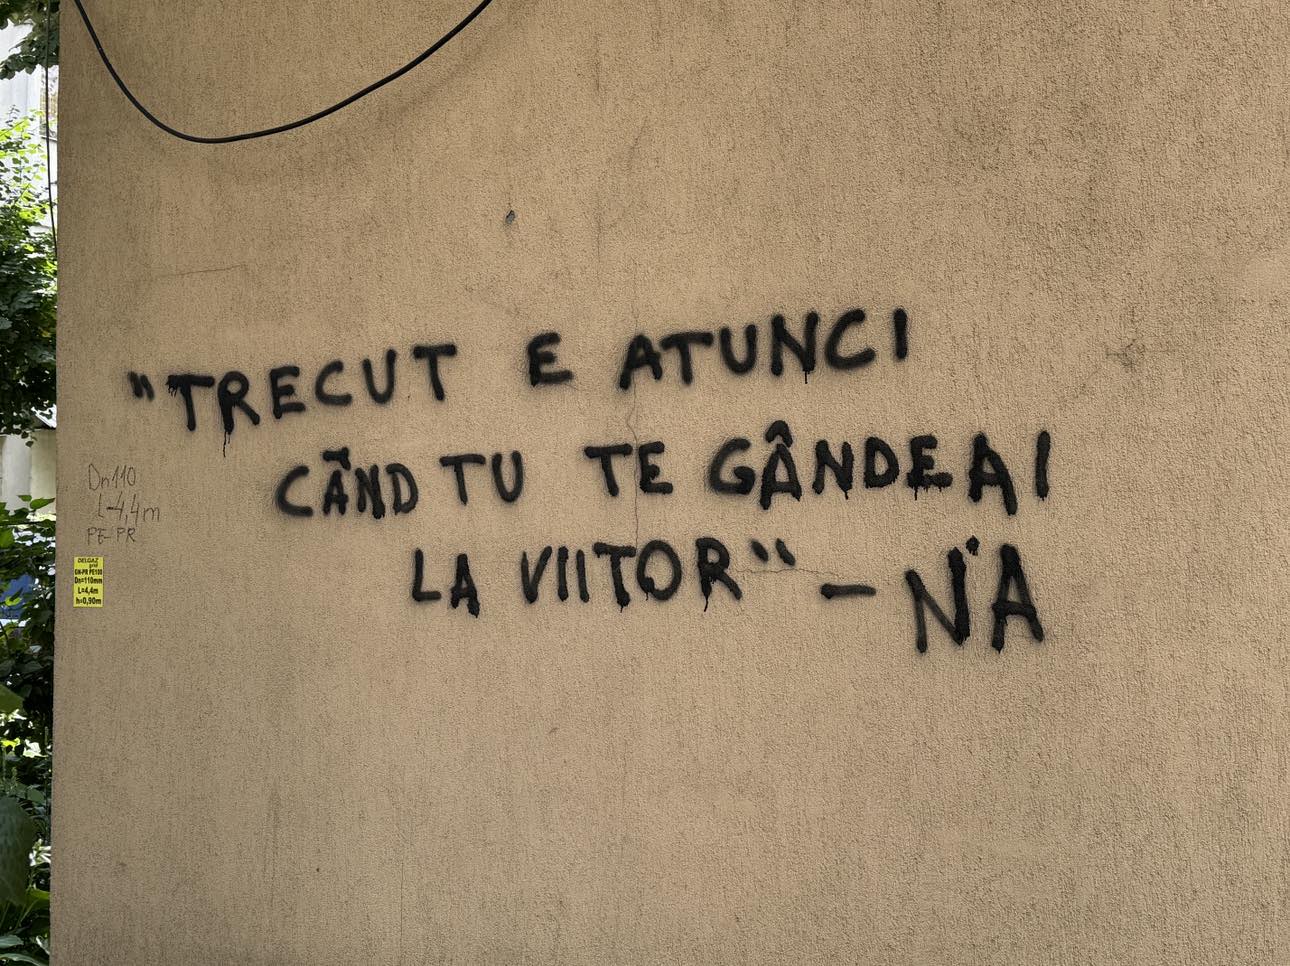 "TRECUT E ATUNCI
CÂND TU TE GÂNDEAI
LA VIITOR" - N'A
Dn110
L-4,4m
PE-PR
DELGAZ
grid
GN-PR PE100
Dn=110mm
L=4,4m
h=0,90m